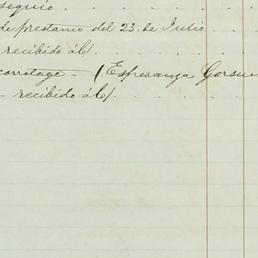 seguio
de prestamo del 23 de Julio
recibido á/c/
corretage — (Esperanza
— recibido á/c/